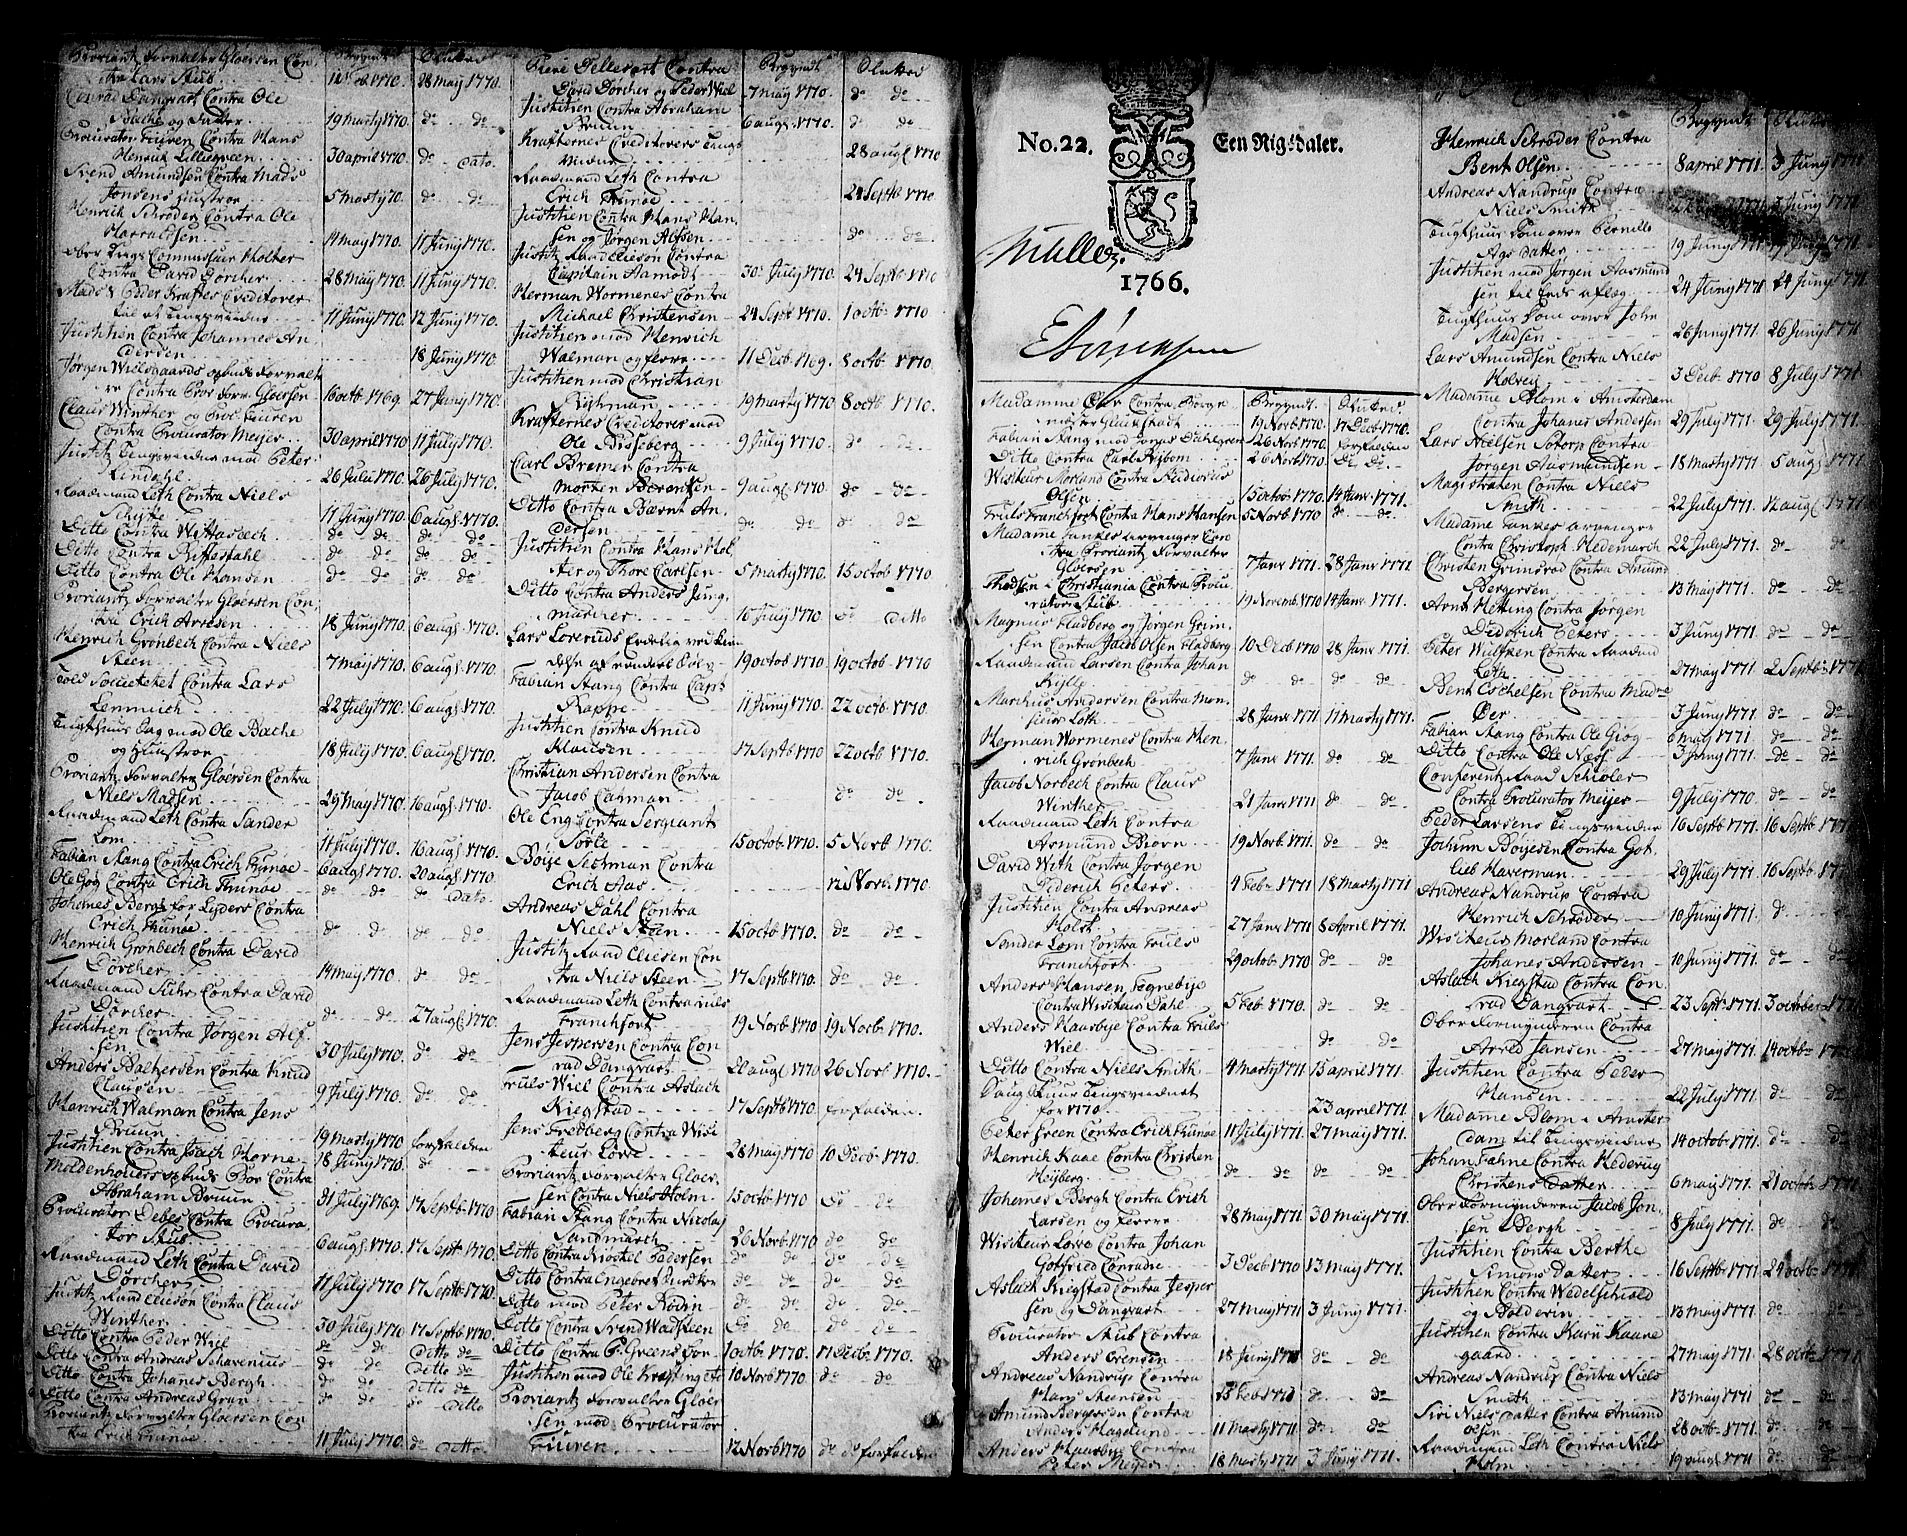 Begyndt Slutted
Proviantz Forvalter Gløersen Con-
tra Lars Skub 28 May 1770.
Conrad Dangvart Contra Ole
Bache og Sutter 19 Marty 1770. do do
Procurator Fuiren Contra Hans
Henrich Lilliegreen 30 april 1770. do Dato.
Svend Amundsen Contra Mads
Jonsens Hustroe 5 Marty 70. do do
Henrich Schrøder Contra Ole
Harraldsen 14 May 1770. 11 Juny 1770.
Ober Krigs Commissair Holter
Contra David Dorcher 28 May 1770. 11 Juny 1770.
Mads & Peder Kraftes Creditorer
til et Tingsvidne 11 Juny 1770. 12 Juny 1770.
Justitien Contra Johannes An-
dersen 18 Juny 1770.
Jørgen Wielsgaards Opbuds Forvalt-
re Contra Prov. Forv. Gloersen 16 octb 1769. 27 Juny 1770.
Claus Winther og Proc. Fuiren
Contra Procurator Meyer 30 april 1770 11 July 1770.
Justitz Tingsvidne mod Peter
Lindahl 26 July 1770. 26 July 1770.
Raadmand Leth Contra Niels
Schytte 11 Juny 1770. 6 augs. 1770.
Ditto Contra Wittusbech do do do do
Ditto Contra Riffestahl do do do do
Ditto Contra Ole Hansen do do do do
Proviantz Forvalter Gloersen Con-
tra Erich Arvesen 18 Juny 1770. 6 augs 1770.
Henrich Gronbech Contra Niels
Steen 7 May 1770. 6 augs. 1770.
Told Societetet Contra Lars
Lemmich 22 July 1770. 6 augs 1770.
Tugthuus Sag mod Ole Bache
og Hustroe 18 July 1770. 6 augs. 1770.
Proviantz Forvalter Gløersen Contra
Niels Madsen 29 May 1770. 16 augs. 1770.
Raadmand Leth Contra Sander
Lom 11 July 1770. 16 augs 1770.
Fabian Stang Contra Erich Thunoe 6 augs 1770. 20 augs 1770.
Ole Gog Contra Erich Thunoe do do do Dato.
Johannes Bergh for Lyders Contra
Erich Thunoe do do do do
Henrich Gronbech Contra David
Dorcher 14 May 1770 do do
Raadmand Suhr Contra David
Dorcher do do 27 augs. 1770.
Justitien Contra Jørgen Alf-
sen 30 July 1770. do do
Anders Balthersen Contra Knud
Clausen 9 July 1770. do do
Henrich Walman Contra Jens
Bruun 19 Marty 1770 forfalden
Justitien Contra Isach Horne 18 Juny 1770. do
Moldenhouers opbuds Boe Contra
Abraham Bruun 31 July 1769. 17 Septb. 1770
Procurator Debes Contra Procura-
tor Skub 6 augs 1770. 17 Septb 1770.
Raadmand Leth Contra David
Dorcher 11 July 1770 17 Septb. 1770.
Justitz Raad Elieson Contra Claus
Winther 30 July 1770. 17 Septb. 1770.
Ditto Contra Peder Wiel do do Ditto do
Ditto Contra Andreas Schavenius do do Ditto do
Ditto Contra Johanes Bergh do do Ditto do
Ditto Contra Andreas Gran do do do Ditto
Proviantz Forvalter Gloersen Con-
tra Erich Thunoe 11 July 1770. do Ditto

Begyndt Slutted
Tiere Dellevart Contra
David Dorcher og Peder Wiel 7 May 1770. do do
Justitien Contra Abraham
Bruun 6 augs. 1770. do do
Krafternes Creditorers Tings-
vidne 28 augs 1770
Raadmand Leth Contra
Erich Thunoe 24 Septb 1770
Justitien Contra Hans Han-
sen og Jørgen Alfsen do do
Justitz Raad Elieson Contra
Capitain Aamodt 30 July 1770. 24 Septb 1770
Herman Wormenes Contra
Michael Christensen 24 Septb 1770. 1 octb 1770
Justitien mod Henrich
Walman og flere 11 Decb 1769. 8 octb 1770.
Justitien mod Christian
Rishman 19 Marty 1770 8 octb 1770.
Krafternes Creditorer mod
Ole Bosseberg 9 July 1770. do do
Carl Bremer Contra
Morten Berentsen 9 augs 1770. do do
Ditto Contra Bærnt An-
dersen do do do do
Justitien Contra Hans Hol-
ter og Thore Carlsen 5 Marty 1770. 15 octob 1770
Ditto Contra Anders Jung-
marcher 16 July 1770 do Ditto
Lars Lorends Edelig 
 19 octob 1770 19 octob 1770
Fabian Stang Contra Capt.
Rappe 11 Juny 1770. 22 octb 1770
Justitien Contra Knud
Klausen 17 Septb 1770 22 octb 1770.
Christian Andersen Contra
Jacob Cahman do do
Ole Eng Contra Sergiant
Sørle 15 octob 1770. 5 Norb 1770.
Boÿe Seehman Contra
Erich Aas 12 Norb. 1770.
Andreas Dahl Contra
Niels Steen 15 octb 1770. do do
Justitz Raad Eliesen Con-
tra Niels Steen 17 Septb 1770. do do
Raadmand Leth Contra Truls
Franchfort 19 Norb 1770 19 Norb. 1770.
Jens Jespersen Contra Con-
rad Dangvart 20 augs 1770 26 Norb 1770.
Truls Wiel Contra Aslach
Kiegstad 17 Septb 1770 forfalden.
Jens Fredberg Contra Wisi-
teur Lovre 28 May 1770 10 Decb. 1770.
Proviantz Forvalter Gloer-
sen Contra Niels Holm 15 octb. 1770 do do
Fabian Stang Contra Nicolay
Sandmarch 26 Norb 1770 do do
Ditto Contra Kiostel Pedersen do do do do
Ditto Contra Engebret do do do do
Ditto mod Peter Rodin do do do do
Ditto Contra Svend Wadsteen do do do do
Ditto Contra P. Greens Boe 1 octb. 1770. 17 Decb. 1770.
Justitien mod Ole Krafting etc 10 Norb 1770 do do
Proviantz Forvalter Gløer-
sen mod Procurator
Fuiren 12 Norb 1770 do do forfalden

No. 22. Een Rigsdaler.
Muller.
1766.

Begyndt. Sluttet
Madamme Øer Contra Borge-
mester Gluckstadt 19 Norb 1770. 17 Decb 1770.
Fabian Stang mod Jonas Dahlgreen 26 Norb 1770. forfalden
Ditto Contra Carl Nybom 26 Norb 1770. Do Do
Wisiteur Morland Contra
Olsen 15 octob 1770. 14 Janr. 1771.
Truls Franchfort Contra Hans Hansen 5 Norb 1770 do do
Madame Tankes Arvinger Con-
tra Proviantz Forvalter
Gloersen 7 Janr. 1771. 28 Janr 1771.
Thodsen i Christiania Contra Procu-
rator Skub 19 Novemb. 1770 14 Janr. 1771.
Magnus Fladberg og Jørgen Grim-
sen Contra Jacob Olsen Fladberg 10 Decb 1770 28 Janr 1771.
Raadmand Larsen Contra Johan
Kylle do do do do
Marthus Andersen Contra Mon-
sieur Loth 28 Janr 1771 11 Marty 1771.
Herman Wormenes Contra Hen-
rich Gronbech 7 Janr. 1771 do do
Jacob Norbech Contra Claus
Winther 21 Janr 1771 do do
Raadmand Leth Contra
Asmund Biorn 19 Norb. 1771. do do
David With Contra Jorgen
Diderich Peters 4 Febr 1771 18 Marty 1771
Justitien Contra Andreas
Holst 27 Janr 1771 8 April 1771.
Sander Lom Contra Truls
Franchfort 29 octob 1770 do do
Anders Hansen Tegnebye
Contra Wisiteur Dahl 5 Feb. 1770. do do
Anders Haarbye Contra Truls
Wiel do do
Ditto Contra Niels Smith 4 Marty 1771 15 april 1771.
Laug Huus Tingsvidnet
for 1770. 23 april 1771.
Peter Green Contra Erich Thunoe 11 July 1771 27 May 1771.
Henrich Kaae Contra Christen
Heyberg do do do do
Johannes Bergh Contra Erich
Larsen og flerre 28 May 1771 30 May 1771.
Wisiteur Lovre Contra Johan
Gotfried Conradie 3 Decb 1770 13 May 1771.
Aslach Kiigstad Contra Jesper-
sen og Dangvart 27 May 1771 3 Juny 1771.
Procurator Skub Contra
Anders Evensen 18 Juny 1771 do do
Andreas Nandrup Contra
Hans Steensen 25 Feb 1771 do do
Amund Bergersen Contra
Anders Haglund 11 Marty 1771 do do
Anders Haarbye Contra
Peter Meyer 18 Marty 1771 3 Juny 1771.

Begyndt Sluttet
Henrich Schrøder Contra
Bent Olsen 8 april 1771. 3 Juny 1771
Andreas Nandrup Contra
Niels Smith 3 Juny 1771
Tugthuus Dom over Pernille
Ags datter 19 Juny 1771
Justitien mod Jorgen Aasmund-
sen til Eeds aflæg 24 Juny 1771 24 Juny 1771.
Tugthuus Dom over John
Madsen 26 Juny 1771. 26 Juny 1771
Lars Amundsen Contra Niels
Kolvig 3 Decb. 1770 8 July 1771
Madame Blom i Amsterdam
Contra Johanes Andersen 29 July 1771. 29 July 1771.
Lars Nielsen Sotorp Contra
Jorgen Aasmundsen 18 Marty 1771. 5 augs 1771
Magistraten Contra Niels
Smith 22 July 1771. 12 augs 1771
Madame Tankes Arvinger
Contra Christoph Hedemarch 22 July 1771. do do
Christen Grimsrod Contra Amund
Bergersen 13 May 1771. do do
Arne Hetting Contra Jørgen
Diderich Peters 3 Juny 1771. do do
Peter Wulfsen Contra Raadmd
Leth 27 May 1771 2 Septb. 1771
Bent Eschelsen Contra Madme
Øer 3 Juny 1771 do do
Fabian Stang Contra Ole Giøg 6 May 1771 do do
Ditto Contra Ole Næss 3 Juny 1771 do do
Conferentz Raad Schioler
Contra Procurator Meyer 9 July 1770. do do
Peder Larsens Tingsvidne 16 Septb 1771 16 Septb 1771
Jochum Boyesen Contra Got-
lieb Haverman 29 July 1771 16 Septb 1771
Andreas Nandrup Contra
Henrich Schrøder 10 Juny 1771. do
Wisiteur Morland Contra
Johanes Andersen 10 Juny 1771. do do
Aslach Kiigstad Contra Con-
rad Dangvart 23 Septb 1771. 3 october 1771
Ober Formynderen Contra
Arved Jansen 27 May 1771. 14 octb 1771
Justitien Contra Peder
Hansen 22 July 1771. do do
Madame Blom i Amster-
dam til Tingsvidne 14 octob 1771. do do
Johan Fahne Contra Hedevig
Christens Datter 6 May 1771. 21 octb 1771.
Ober Formynderen Jacob Jon-
sen Bergh 8 July 1771. do do
Justitien Contra Berthe
Simons Datter 16 Septb 1771. 24 octb 1771
Justitien Contra Wedelschiold
og Bolderin 13 May 1771. do do
Justitien Contra Karii Kaare-
gaard 27 May 1771. 28 octb 1771
Andreas Nandrup Contra Niels
Smith 13 May 1771. do do
Siri Niels Datter Contra Amund
Olsen 28 octb. 1771 do do
Raadmand Leth Contra Niels
Holm 19 augs 1771 do do